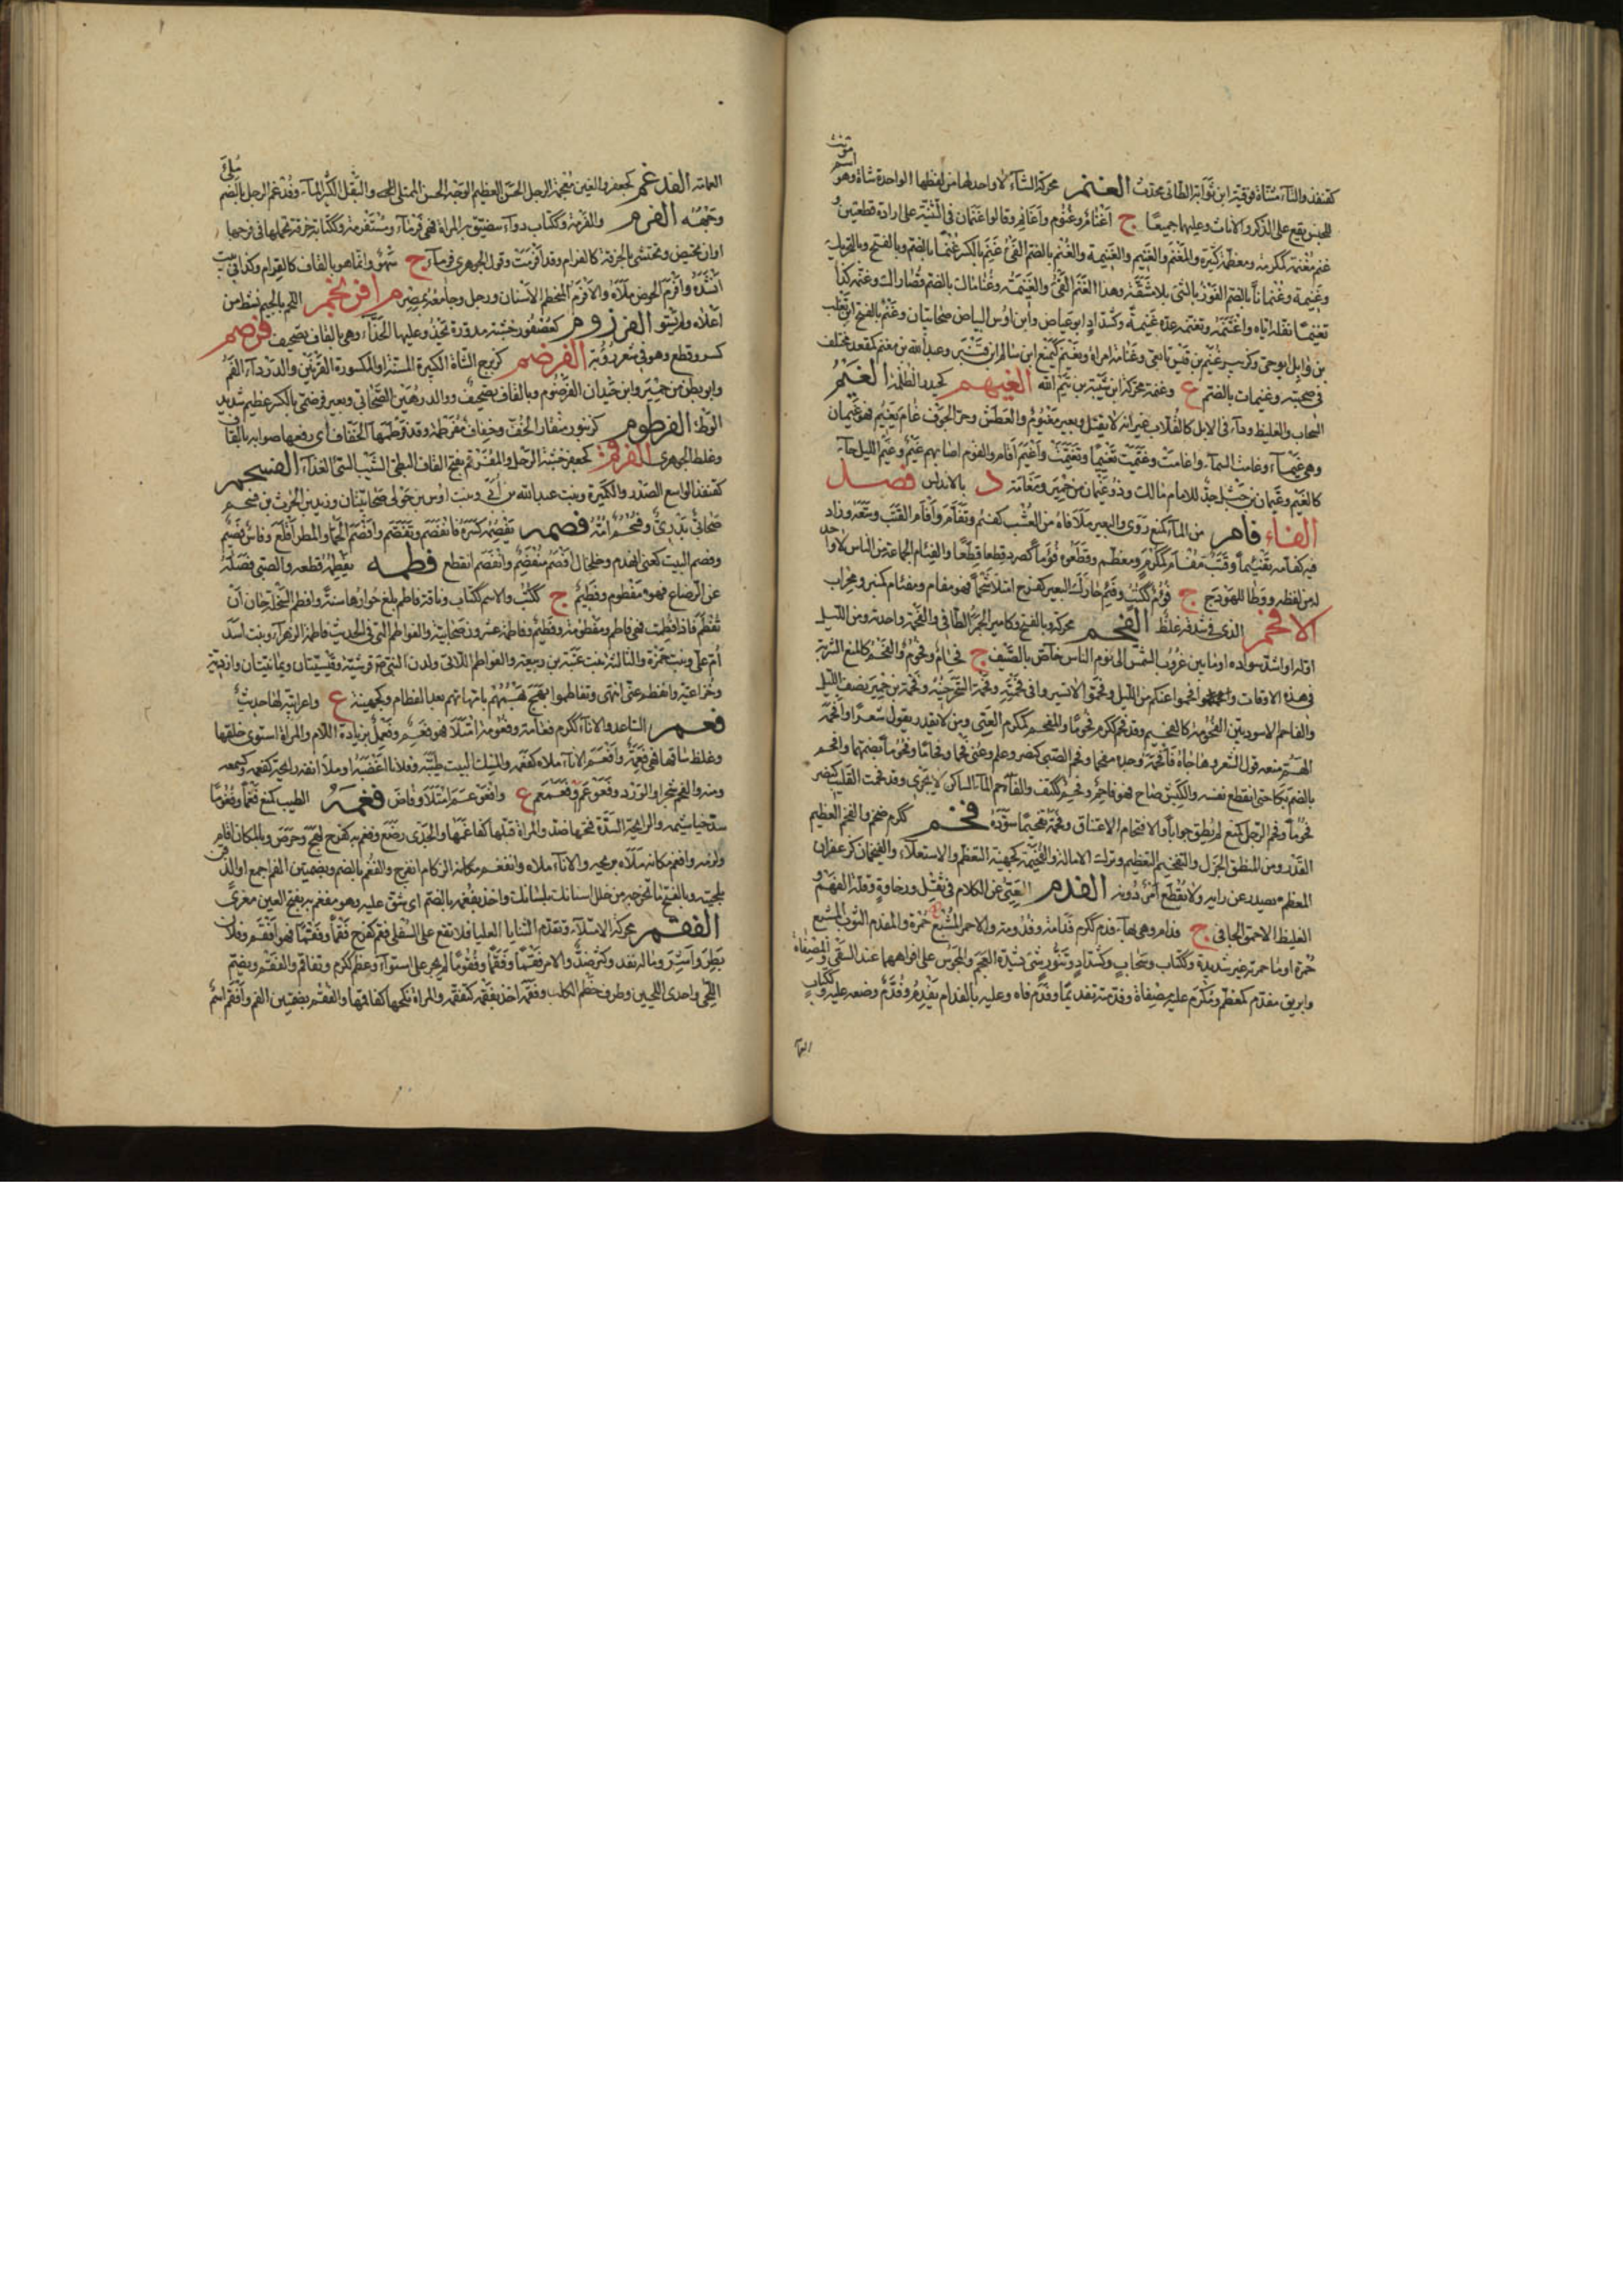 كقنفذ والتاء مثناة فوقية ابن ثوابة الطائي محدث الغنم محركة الشاء لا واحد لها من لفظها الواحدة شاة وهو اسم مؤنث
للجنس يقع على الذكور والاناث وعليهما جميعا ج اغنام وغنوم واغانم وقالوا غنمان في التثنية على ارادة قطيعين و
غنم مغنمة كمكرمة ومعظمة كثيرة والمغنم والغنيم والغنيمة والغنم بالضم الفيء غنم بالكسر غنما بالضم وبالفتح وبالتحريك
وغنيمة وغنمانا بالضم الفوز بالشيء بلا مشقة وهذا الغنم الفيء والغنيمة وغناماك بالضم قصاراك وغنمه كذا
تغنيما نفله اياه واغتنمه وتغنمه عده غنيمة وكشداد ابو عياض وابن اوس البياض صحابيتان وغنم بالفتح ابن تغلب
بن وائل ابو حي وكزبير غنيم بن قيس تابعي وغنامة امراة ويغنم كيمنع ابن سالم ابن قنبر وعبد الله بن مغنم كمقعد مختلف
في صحبته وغنيمات بالضم ع وغنمة محركة ابن ثعلبة بن تيم الله الغيهم كحيدر الظلمة الغيم
السحاب والغليظ وداء في الابل كالقلاب غير انه لا يقتل وبعير مغيوم والعطش وحر الجوف غام يغيم فهو غيمان
وهي غيماء وغامت السماء واغامت وغيمت تغييما وتغيمت واغيم اقام والقوم اصابهم غيم وغيم الليل جاء
كالغيم وغيمان بن خثيل جد للامام مالك وذو غيمان من حمير ومغامة د بالاندلس فصل
الفاء فام من الماء كمنع روى والبعير ملأ فاه من العشب كفئم وتفأم وأفأم القتب وسعه وزاد
فيه كفأمه تفئيما وقتب مفأم كمكرم ومعظم وقطعوه فؤما كصرد قطعا قطعا والفئام الجماعة من الناس لا واحد
له من لفظه ووطاء للهودج ج فؤم ككتب وفئم حارك البعير كفرح امتلأ شحما فهو مفأم ومفئام كمنبر ومحراب
الافحم الذي في شدقه غلظ الفحم محركة وبالفتح وكامير الجمر الطافي والفحمة واحدته ومن الليل
اوله او اشد سواده او ما بين غروب الشمس الى نوم الناس خاص بالصيف ج فحام وفحوم والفحم كالمنع الشربة
في هذه الاوقات وافحموا عنكم من الليل وفحموا لا تسيروا في فحمته وفحمة السحر حينه وفحمة بن جمير نصف الليل
والفاحم الاسود بين الفحومة كالفحيم وقد فحم ككرم فحوما والمفحم كمكرم العيي ومن لا يقدر يقول شعرا وافحمه
الهم منعه قول الشعر وهاجاه فافحمه وجده مفحما وفحم الصبي كنصر وعلم وعني فحما وفحاما وفحوما بضمهما وافحم
بالضم بكى حتى انقطع نفسه والكبش صاح فهو فاحم وفحم ككتف والفاحم الماء الساكن لا يجري وقد فحمت القليب كنصر
فحوما وفحم الرجل كمنع لم يطق جوابا والافتحام الاعتناق وفحمه تفحيما سوده فخم ككرم ضخم والفخم العظيم
القدر ومن المنطق الجزل والتفخيم التعظيم وترك الامالة والفخيمة كجهينة التعظم والاستعلاء والفيخمان كزعفران
المعظم يصدر عن رايه ولا يقطع امر دونه الفدم العيي عن الكلام في ثقل ورخاوة وقلة الفهم و
الغليظ الاحمق الجافي ج فدام وهي بهاء فدم ككرم فدامة وفدومة والاحمر المشبع حمرة والمفدم الثوب المشبع
حمرة او ما حمرته غير شديدة وككتاب وسحاب وكشداد وتنور شيء تشده العجم والمجوس على افواهها عند السقي والمصفاة
وابريق مفدم كمعظم ومكرم عليه مصفاة وفدمته تفديما وفدم فاه وعليه بالفدام يفدم وفدم وضعه عليه وككتاب
العما
العمامة الفدغم كجعفر والغين معجمة الرجل الحسن العظيم الوجه الحسن الممتلئ اللحم والبقل الكثير الماء وفدغم الرجل بالضم ملئ
وجهه الفرم والفرمة وككتاب دواء تضيق به المراة فهي فرماء ومستفرمة وككتابة خرقة تحملها في فرجها
او ان تحيض وتحتشي بالخرقة كالفرام وقد افترمت وقول الجوهري فرماء ع سهو وانما هو بالقاف كالفرام وكذا في بيت
انشده وافرم الحوض ملأه والافرم المتحطم الاسنان ورجل وجامعه بمصر م افرنجم اللحم بالجيم نشط من
اعلاه ولم يشو الفرزوم كعصفور خشبة مدورة تحذو عليها الحذاء وهي بالقاف تصحيف فرصم
كسر وقطع وهو في شعر رؤبة الفرضم كزبرج الشاة الكبيرة المسنة او المكسورة القرنين والدرداء الفم
وابو بطن من حمير وابن حيدان الفرضم وبالقاف تصحيف ووالد زهين الصحابي وبعير فرضمي بالكسر عظيم شديد
الوطاء الفرطوم كزنبور منقار الخف وخفاف مفرطمة وقد فرطمها الخفاف اي رقعها صوابه بالقاف
وغلط الجوهري الفرقم كجعفر حشفة الرجل والمفرقم بفتح القاف البطيء الشيب السيئ الغذاء الفسحم
كقنفذ الواسع الصدر والكمرة وبنت عبد الله بن ابي وبنت اوس بن خولي صحابيتان ويزيد بن الحرث بن فسحم
صحابي بدري وفسحم امه فصمه يفصمه كسره فانفصم وتفصم وافصم الحمى والمطر اقلع وفاس فصيم
وفصم البيت كعني انهدم وخلخال افصم منفصم وانفصم انقطع فطمه يفطمه قطعه والصبي فصله
عن الرضاع فهو مفطوم وفطيم ج ككتب والاسم ككتاب وناقة فاطم بلغ حوارها سنة وافطم السخلة حان ان
تفطم فاذا فطمت فهي فاطم ومفطومة وفطيم وفاطمة عشرون صحابية والفواطم التي في الحديث فاطمة الزهراء وبنت اسد
ام علي وبنت حمزة والثالثة بنت عتبة بن ربيعة والفواطم اللاتي ولدن النبي صلعم قرشية وقيسيتان ويمانيتان وازدية
وخزاعية وانفطم عني انتهى وتفاطموا لهج بهمهم بامهاتهم بعد الفطام وكجهينة ع واعرابية لها حديث
فعم الساعد والاناء ككرم فعامة وفعومة امتلأ فهو فعم وفعمل بزيادة اللام والمراة استوى خلقها
وغلظ ساقها فهي فعمة وافعم الاناء ملأه كفعمه والمسك البيت طيبه وفلانا اغضبه او ملأ انفه رائحة كفعمه كمنعه
ومنه والفعم شجر او الورد وفعوعم وفعمعم ع وافعوعم امتلأ وفاض فغمه الطيب كمنع فغما وفغوما
سد خياشيمه والرائحة السدة فتحها ضد والمراة قبلها كفاغمها والجدي رضع وفغم به كفرح لهج وحرص وبالمكان اقام
ولزمه وافغم مكانه ملأه بريحه والاناء ملأه وانفغم مكانه الزكام انفرج والفغم بالضم وبضمتين الفم اجمع او الذقن
بلحيته وبالفتح ما تخرجه من خلل اسنانك بلسانك واخذ بفغمه بالضم اي شق عليه وهو مفغم به بفتح الغين مغرى
الفقم محركة الامتلاء وتقدم الثنايا العليا فلا تقع على السفلى فقم كفرح فقما وفقما فهو افقم وفلان
بطر واشر وماله نفد وكثر ضد والامر فقما وفقما وفقوما لم يجر على استواء وعظم ككرم وتفاقم والفقم ويضم
اللحي واحدى اللحيين وطرف خطم الكلب وفقمه اخذ بفقمه كتفقمه والمراة نكحها كفاقمها والفقم بضمتين الفم وافقم اسم